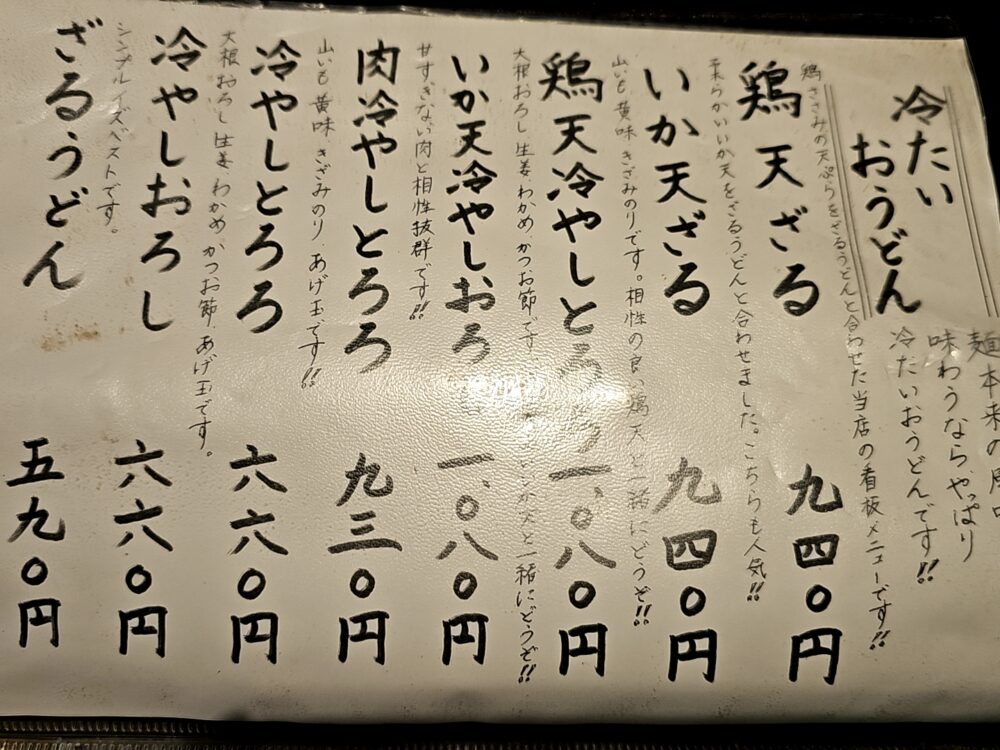 冷たい
おうどん
麺本来の風味
味わうなら、やっぱり
冷たいおうどんです!!
鶏天ざる 九四〇円
鶏ささみの天ぷらをざるうどんと合わせた当店の看板メニューです!!
いか天ざる 九四〇円
柔らかいいか天をざるうどんと合わせました。こちらも人気!!
鶏天冷やしとろろ 一、〇八〇円
山いも 黄味 きざみのりです。相性の良い鶏天と一緒にどうぞ!!
いか天冷やしおろし 一、〇八〇円
大根おろし 生姜 わかめ かつお節です いか天と一緒にどうぞ!!
肉冷やしとろろ 九三〇円
甘すぎない肉と相性抜群です!!
冷やしとろろ 六六〇円
山いも 黄味 きざみのり、あげ玉です!!
冷やしおろし 六六〇円
大根おろし 生姜 わかめ かつお節、あげ玉です。
ざるうどん 五九〇円
シンプルイズベストです。